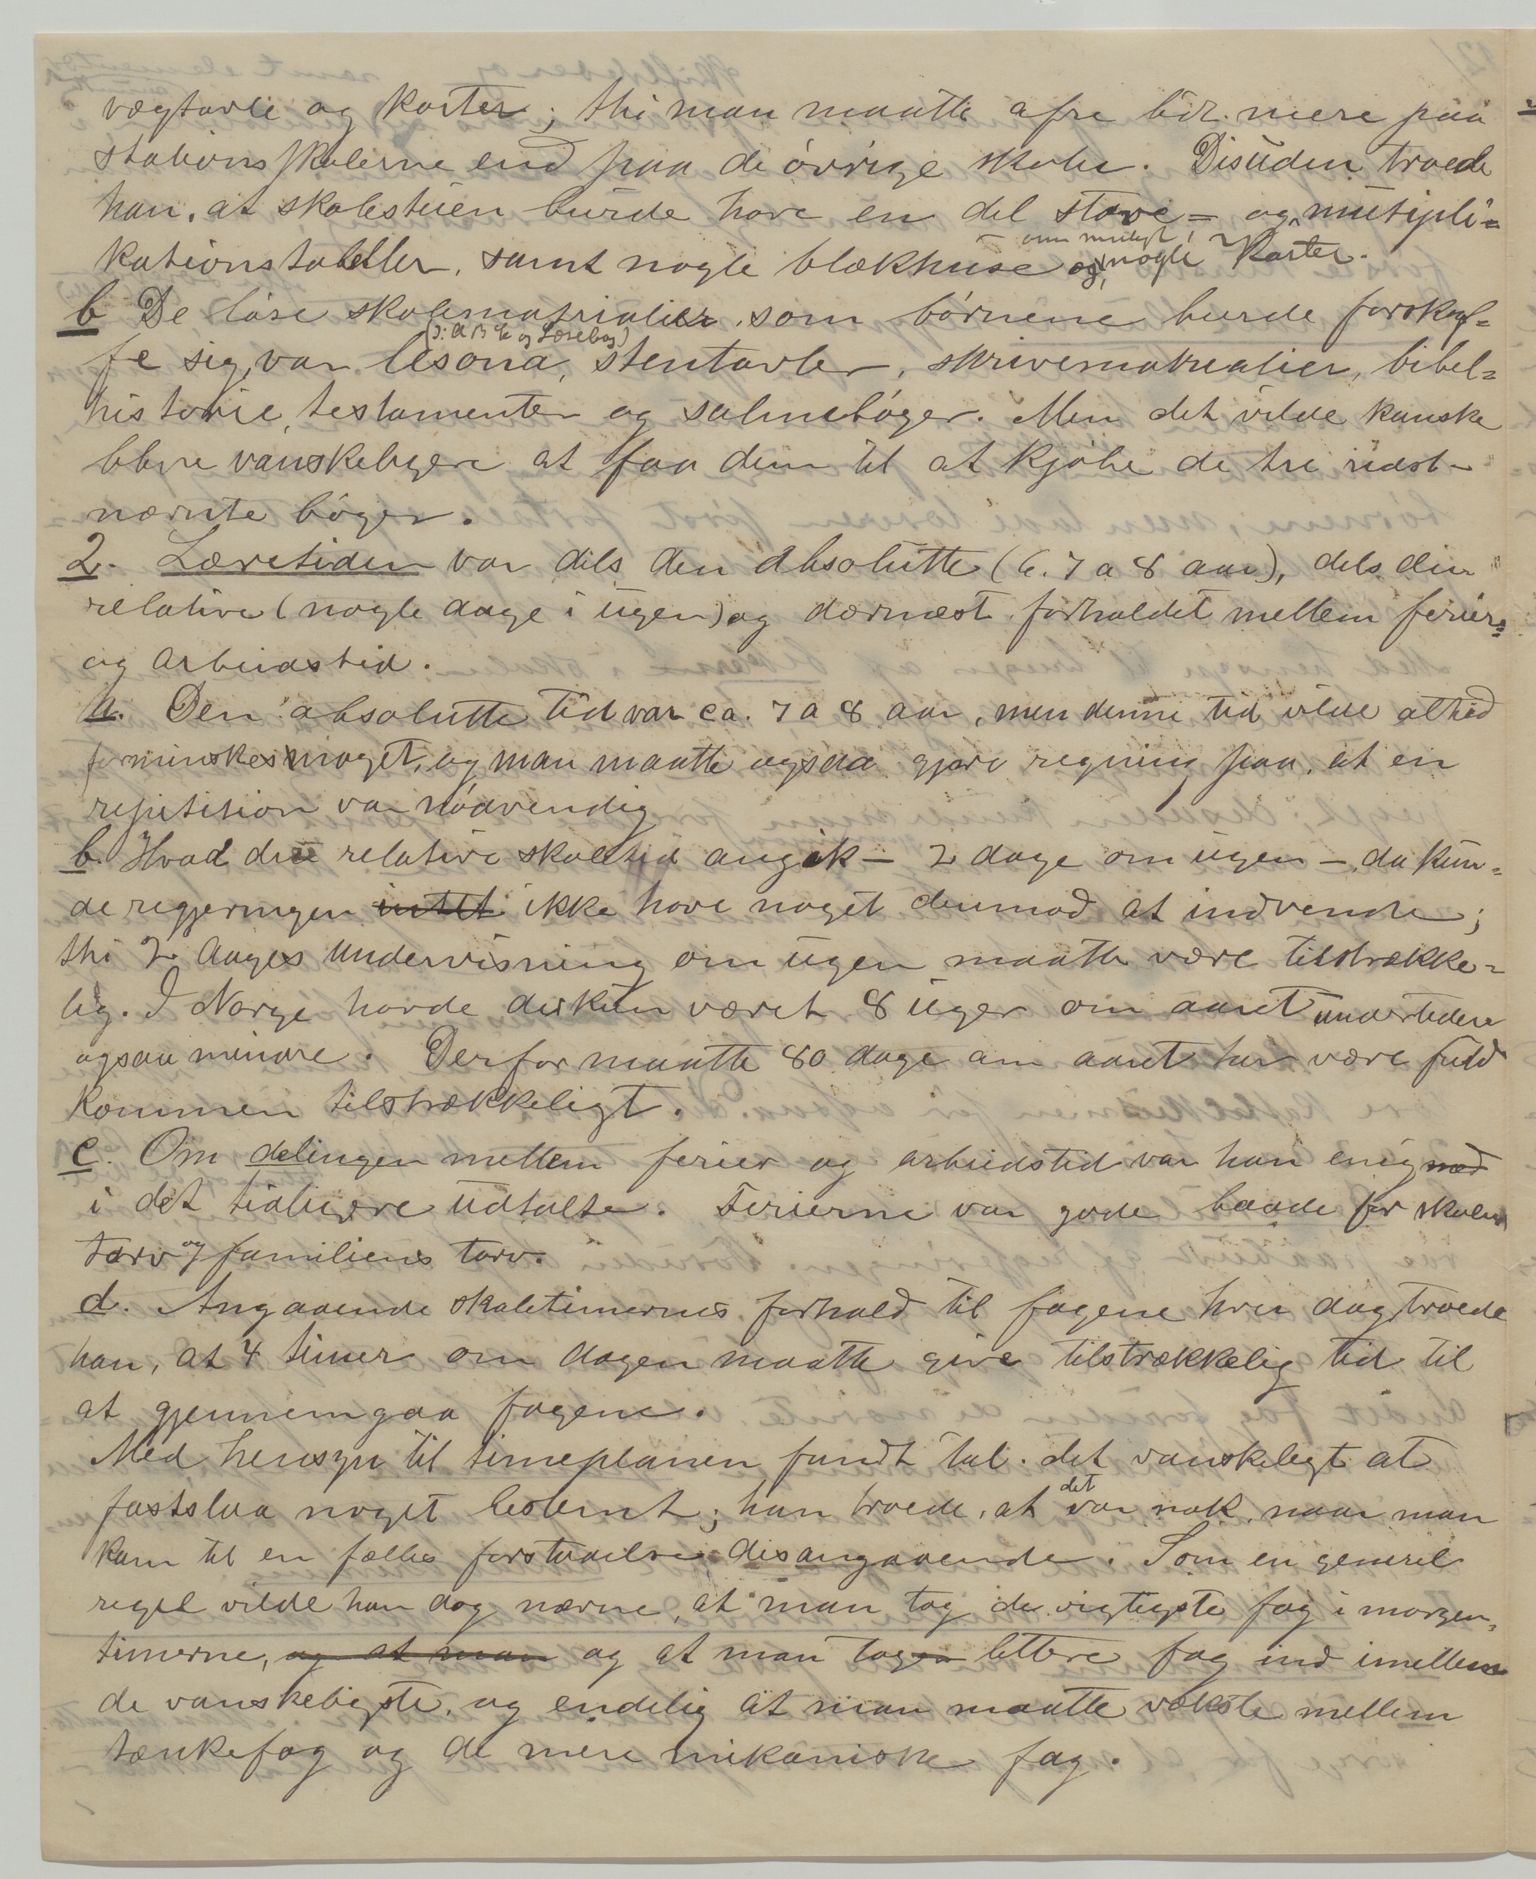 vægtavle og karter; thi man maatte ofre lidt mere paa
stationsskolerne end paa de øvrige skoler. Desuden troede
han, at skolestuen burde have en del stave- og multipli-
kationstabeller, samt nogle blækhuse og, om muligt, nogle karter.
b De løse skolematerialier, som børnene burde forskaf-
fe sig, var lesona (ɔ: ABC og Læsebog), stentavler, skrivematerialier, bibel-
historie, testamenter og salmebøger. Men det vilde kanske
blive vanskeligere at faa dem til at kjøbe de tre sidst-
nævnte bøger.
2. Læretiden var dels den absolutte (c. 7 a 8 aar), dels den
relative (nogle dage i ugen) og dernæst forholdet mellem ferier-
og arbeidstid.
a. Den absolutte tid var ca. 7 a 8 aar, men denne tid vilde altid
forminskes noget, og man maatte ogsaa gjøre regning paa, at en
repitition var nødvendig
b. Hvad den relative skoletid angik – 2 dage om ugen – da kun-
de regjeringen intet ikke have noget derimod at indvende;
thi 2 dages undervisning om ugen maatte være tilstrække-
lig. I Norge havde det kun været 8 uger om aaret undertiden
ogsaa mindre. Derfor maatte 80 dage om aaret her være fuld
kommen tilstrækkeligt.
c. Om delingen mellem ferier og arbeidstid var han enig med
i det tidligere udtalte. Ferierne var gode baade for skolens
tarv og familiens tarv.
d. Angaaende skoletimernes forhold til fagene hver dag troede
han, at 4 timer om dagen maatte give tilstrækkelig tid til
at gjennemgaa fagene.
Med hensyn til timeplanen fandt tal. det vanskeligt at
fastslaa noget bestemt; han troede, at det var nok, naar man
kom til en fælles forstaaelse desangaaende. Som en generel
regel vilde han dog nævne, at man tog de vigtigste fag i morgen-
timerne, og at man og at man tog en lettere fag ind imellem
de vanskeligste, og endelig at man maatte veksle mellem
tænkefag og de mere mekaniske fag.